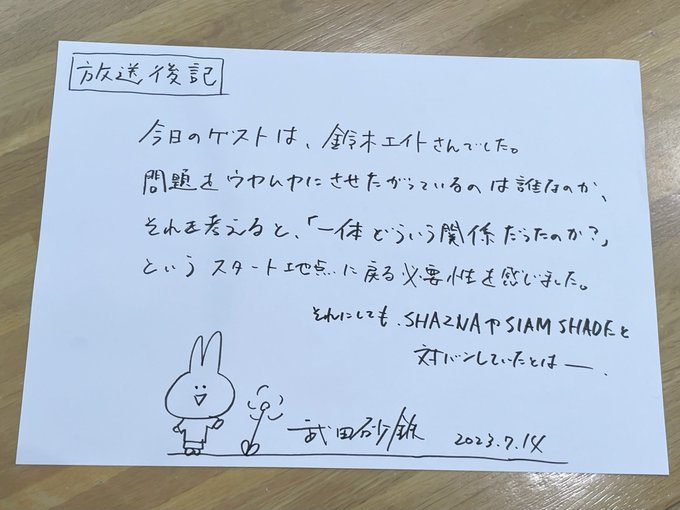 放送後記
今日のゲストは、鈴木エイトさんでした。
問題をウヤムヤにさせたがっているのは誰なのか、
それを考えると、「一体どういう関係だったのか?」
というスタート地点に戻る必要性を感じました。
それにしても、SHAZNAやSIAM SHADEと
対バンしていたとは―。
武田砂鉄 2023.7.14